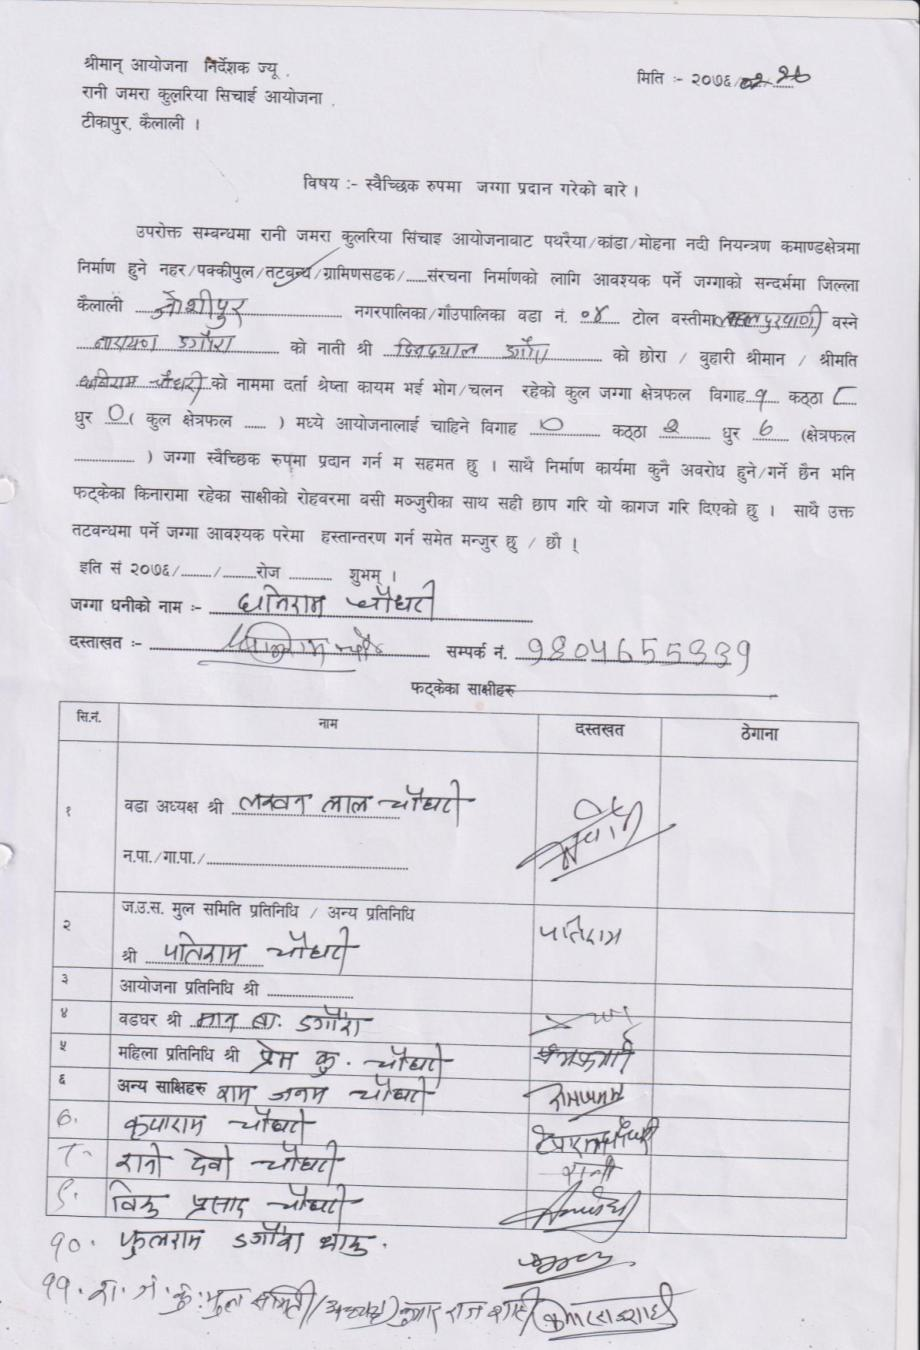 श्रीमान् आयोजना निर्देशक ज्यू ,
मिति :- २०७६/०२/२८
रानी जमरा कुलरिया सिचाई आयोजना ,
टीकापुर, कैलाली ।
विषय :- स्वैच्छिक रुपमा जग्गा प्रदान गरेको बारे ।
उपरोक्त सम्बन्धमा रानी जमरा कुलरिया सिंचाइ आयोजनावाट पथरैया/कांडा/मोहना नदी नियन्त्रण कमाण्डक्षेत्रमा
निर्माण हुने नहर/पक्कीपुल/तटबन्ध/ग्रामिणसडक/......संरचना निर्माणको लागि आवश्यक पर्ने जग्गाको सन्दर्भमा जिल्ला
कैलाली जोशीपुर नगरपालिका/गाँउपालिका वडा नं. ०४ टोल वस्तीमा वस्ने
नारायण डगौरा को नाती श्री दिनदयाल डगौरा को छोरा / वुहारी श्रीमान / श्रीमति
धनिराम चौधरी को नाममा दर्ता श्रेष्ता कायम भई भोग/चलन रहेको कुल जग्गा क्षेत्रफल विगाह १ कठ्ठा ८
धुर ० ( कुल क्षेत्रफल ...... ) मध्ये आयोजनालाई चाहिने विगाह ० कठ्ठा २ धुर ६ (क्षेत्रफल
............... ) जग्गा स्वैच्छिक रुपमा प्रदान गर्न म सहमत छु । साथै निर्माण कार्यमा कुनै अवरोध हुने/गर्ने छैन भनि
फट्केका किनारामा रहेका साक्षीको रोहवरमा वसी मञ्जुरीका साथ सही छाप गरि यो कागज गरि दिएको छु । साथै उक्त
तटवन्धमा पर्ने जग्गा आवश्यक परेमा हस्तान्तरण गर्न समेत मन्जुर छु / छौ ।
इति सं २०७६/......../........रोज ........... शुभम् ।
जग्गा धनीको नाम :- धनिराम चौधरी
दस्ताखत :- धनिराम चौ सम्पर्क नं. 9804655339
फट्केका साक्षीहरु
सि.नं. नाम दस्तखत ठेगाना
१ वडा अध्यक्ष श्री लखन लाल चौधरी
न.पा./गा.पा./
२ ज.उ.स. मुल समिति प्रतिनिधि / अन्य प्रतिनिधि
श्री पतिराम चौधरी पतिराम
३ आयोजना प्रतिनिधि श्री
४ वडघर श्री मान बा. डगौरा
५ महिला प्रतिनिधि श्री प्रेम कु. चौधरी
६ अन्य साक्षिहरु राम जनम चौधरी रामजनम
७. कृपाराम चौधरी
८. रानी देवी चौधरी रानी
९. विष्णु प्रसाद चौधरी
१०. फुलराम डगौरा थारु.
११. रा. ज. कु. मुल समिती (अध्यक्ष) कुमार राज शाही